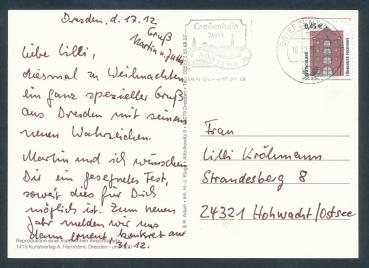 Dresden, d. 17.12
Gruß
Martin u. Jutta
Liebe Lilli,
diesmal zu Weihnachten
ein ganz spezieller Gruß
aus Dresden mit seinem
neuen Wahrzeichen.
Martin und ich wünschen
Dir ein gesegnetes Fest,
soweit dies für Dich
möglich ist. Zum neuen
Jahr melden wir uns
dann erneut, konkret am
31.12.
Reproduktion einer historischen Ansichtskarte
1415 Kunstverlag A. Hartmann, Dresden
Großenhain
2005
800 Jahre
0,45 €
Frau
Lilli Kröhmann
Strandesberg 8
24321 Hohwacht/Ostsee